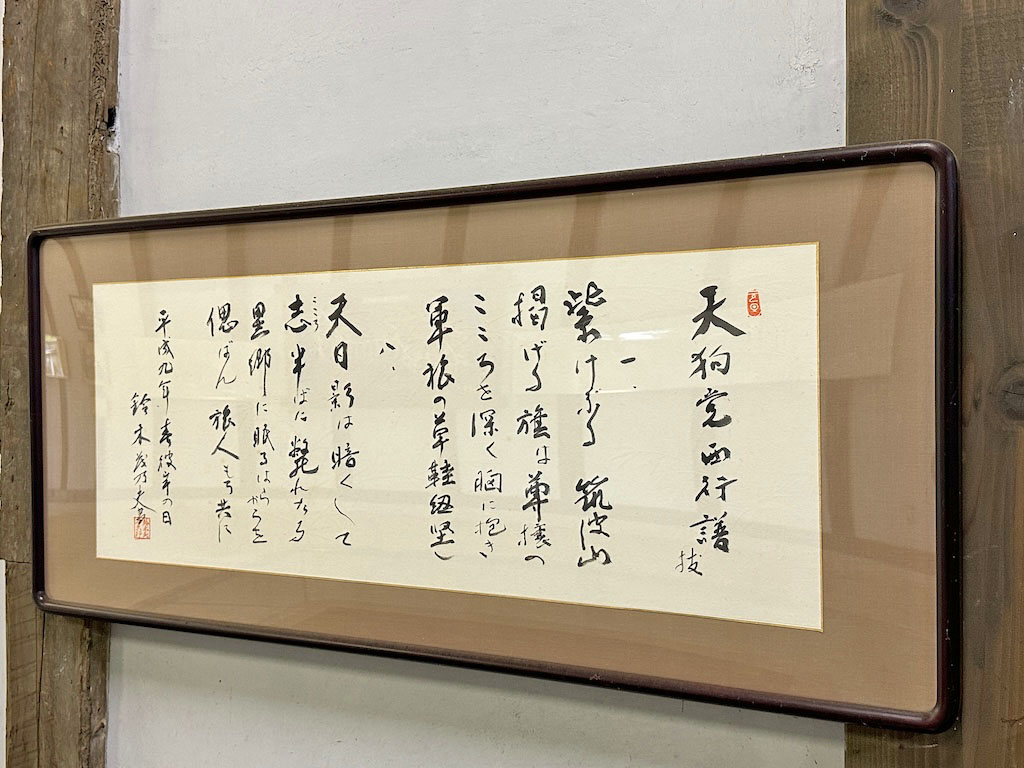 天狗党西行譜 抜
一、
紫けぶる 筑波山
掲げる旗は 尊攘の
こころを深く 胸に抱き
軍旅の草鞋 紐堅し
八、
天日影は 暗くして
志半ばに 斃れたる
こころ
異郷に眠る はらからを
偲ばん旅人 もろ共に
平成九年 春彼岸の日
鈴木茂乃夫